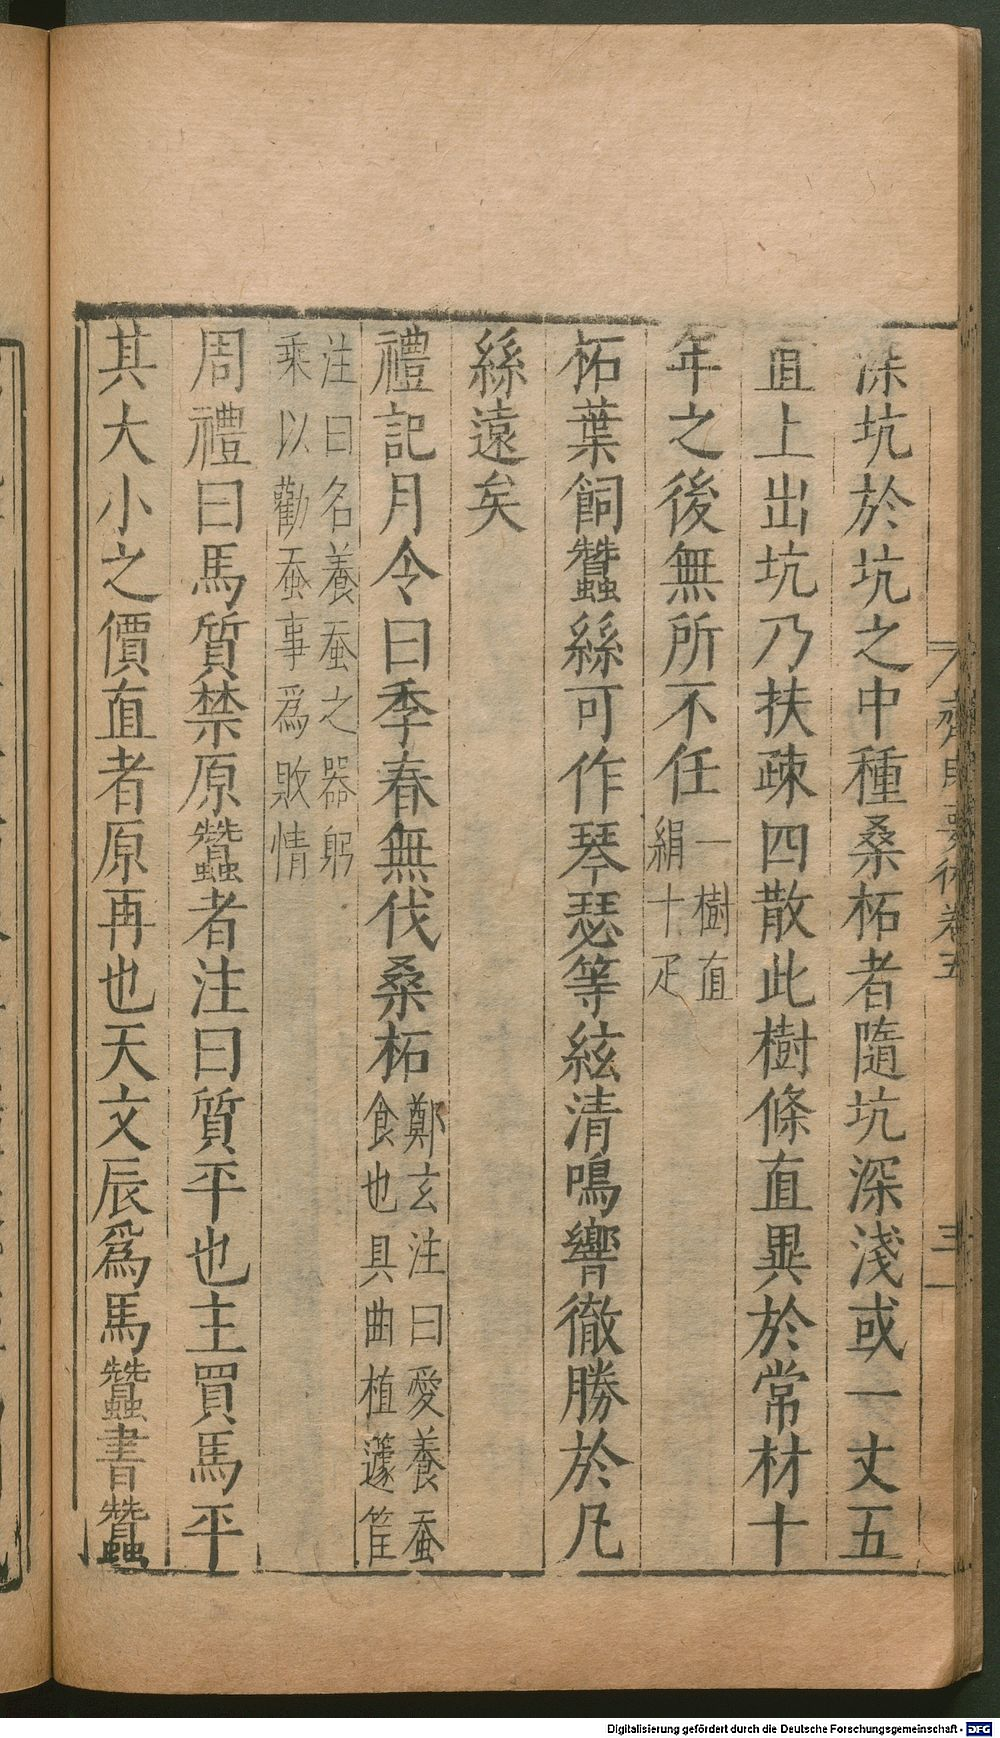 深坑於坑之中種桑柘者隨坑深淺或一丈五
直上出坑乃扶疎四散此樹條直異於常材十
年之後無所不任一樹直絹十疋
柘葉飼蠶絲可作琴瑟等絃清鳴響徹勝於凡
絲遠矣
禮記月令曰季春無伐桑柘鄭玄注曰愛養蚕食也具曲植籧筐
注曰名養蚕之器躬
乘以勸蚕事爲敗情
周禮曰馬質禁原蠶者注曰質平也主買馬平
其大小之價直者原再也天文辰爲馬蠶書蠶
齊民要術卷五
三一
Digitalisierung gefördert durch die Deutsche Forschungsgemeinschaft - DFG